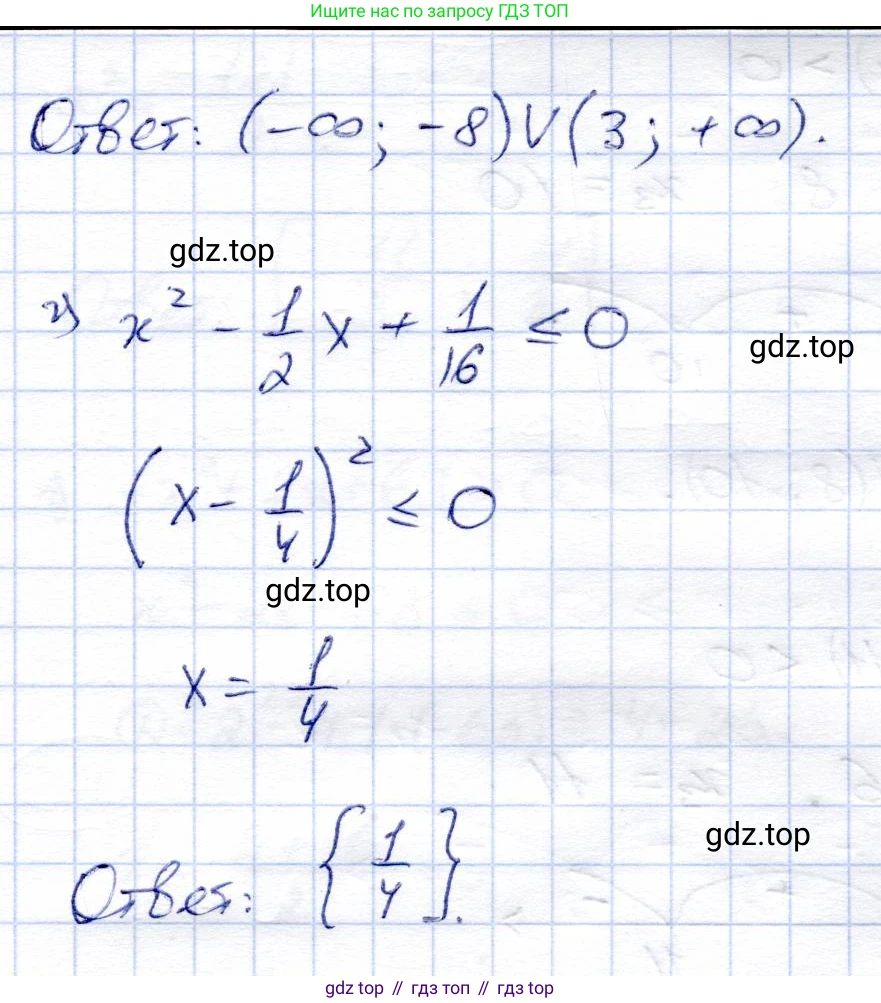 Ищите нас по запросу ГДЗ ТОП
Ответ: (-∞; -8)∪(3; +∞).
gdz.top
г) x² - 1/2 x + 1/16 ≤ 0
gdz.top
(x - 1/4)² ≤ 0
gdz.top
x = 1/4
gdz.top
Ответ: {1/4}.
gdz top // гдз топ // гдз top